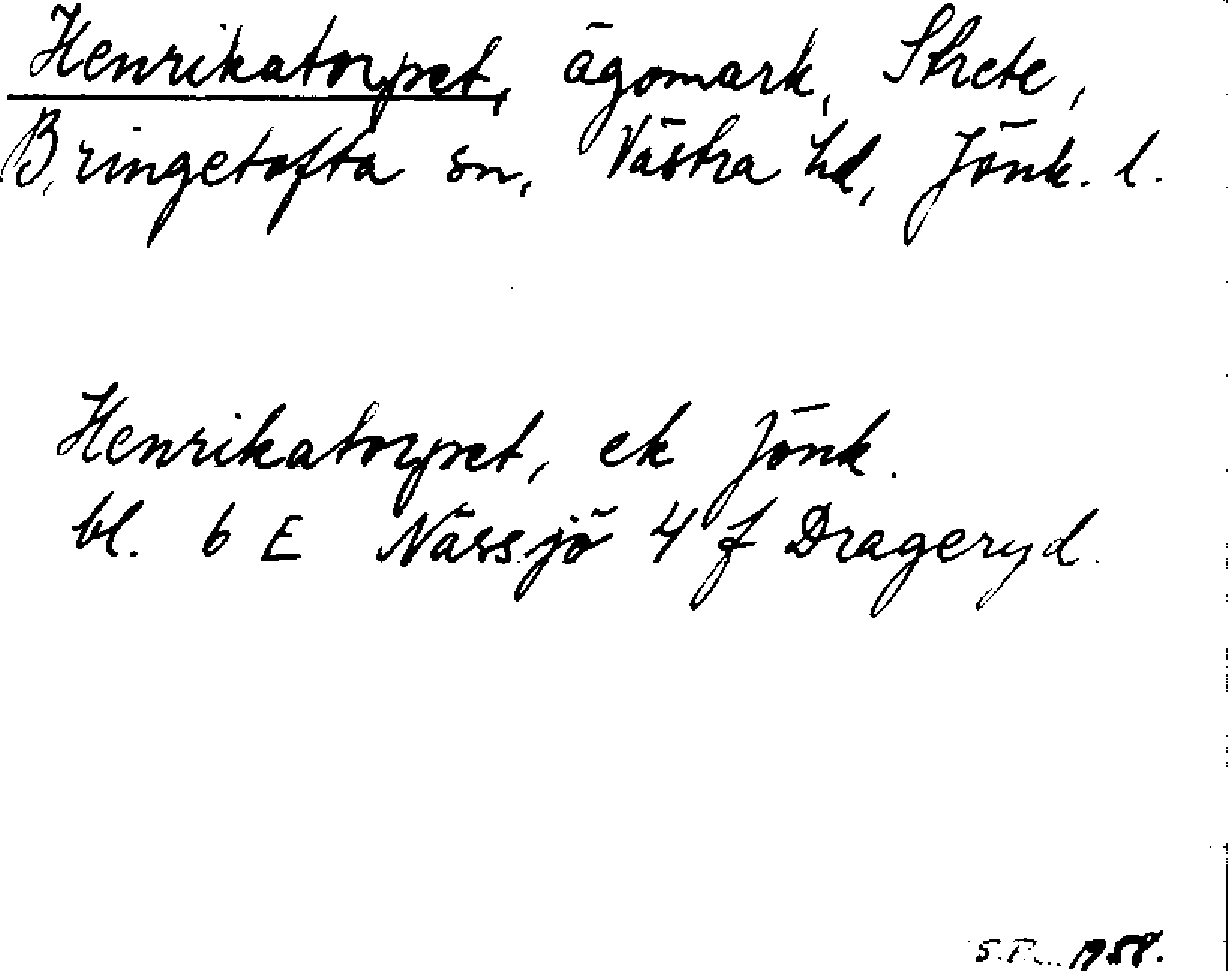 Henrikatorpet, ägomark, Strete,
Bringetofta sn, Västra hd, Jönk. l.
Henrikatorpet, ek Jönk.
bl. 6 E Nässjö 4 f Drageryd.
1958.